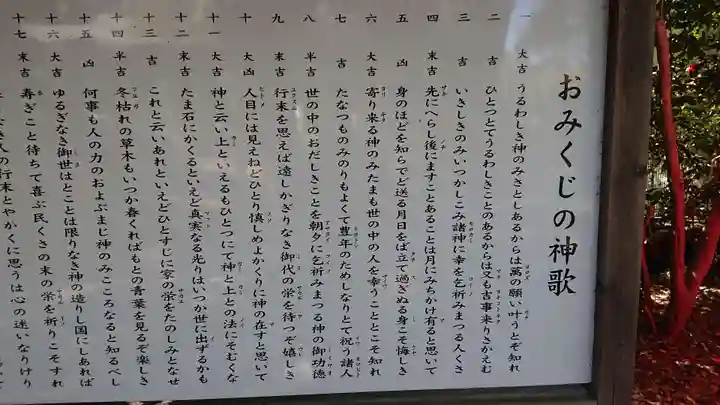 おみくじの神歌
一 大吉 うるわしき神のみさとしあるからは萬の願い叶うとぞ知れ
二 吉 ひとつとてうるわしきことのあるからは又も吉事来りきかえむ
三 吉 いきしきのみいつかしこみ諸神に幸を乞祈みまつる人くさ
四 末吉 先にへらし後にますことあることは月にみちかけ有ると思いて
五 凶 身のほどを知らでど送る月日をば立て過ぎぬる身こそ悔しき
六 大吉 寄り来る神のみたまも世の中の人を幸うこととこそ知れ
七 吉 たなつものみのりもよくて豊年のためしなりとて祝う諸人
八 半吉 世の中のおだしきことを朝夕に乞祈みまつる神の御功徳
九 末吉 行末を思えば遠しかぎりなき御代の栄を待つぞ嬉しき
十 大凶 人目には見えねどひとり慎しめよかくりに神の在すと思いて
十一 大吉 神と云い上といえるもひとつにて神と上との法にそむくな
十二 末吉 たま石にかくるといえど真実なる光りはいつか世に出ずるかも
十三 吉 これと云いあれといえどひとすじに家の栄をたのしみとなせ
十四 半吉 冬枯れの草木もいつか春くればもとの青葉を見るぞ楽しき
十五 凶 何事も人の力のおよぶまじ神のみこころなると知るべし
十六 大吉 ゆるぎなき御世はとことは限りなき神の造りし国にしあれば
十七 末吉 寿ぎこと待ちて喜ぶ民くさの末の栄を祈りこそすれ
人の行末とやかくに思うは心の迷いなりけり